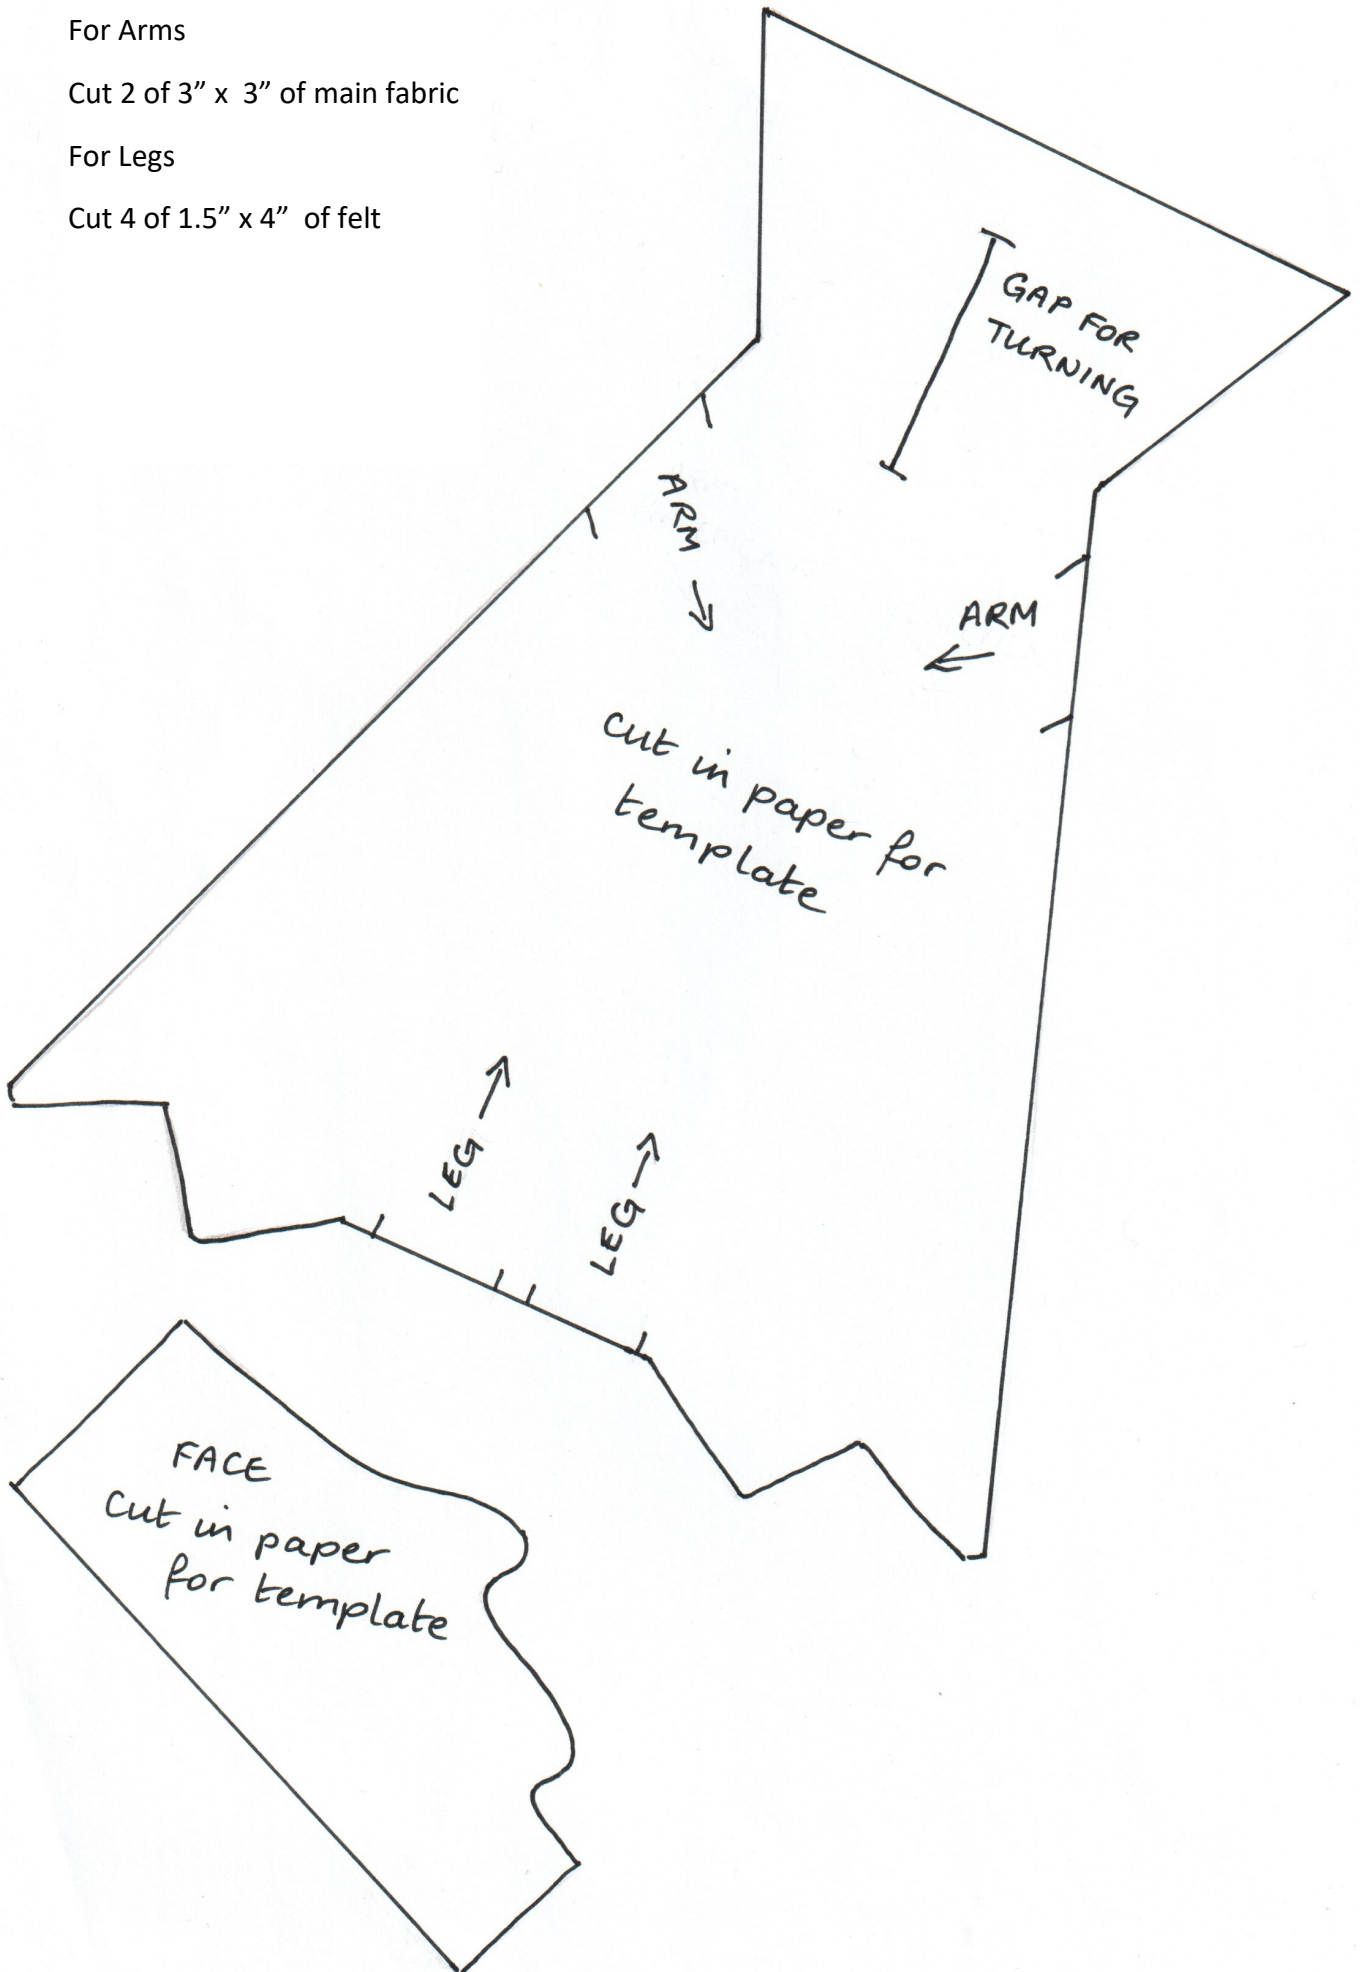 For Arms
Cut 2 of 3” x  3” of main fabric
For Legs
Cut 4 of 1.5” x 4”  of felt
GAP FOR
TURNING
ARM
ARM
Cut in paper for
template
LEG
LEG
FACE
Cut in paper
for template